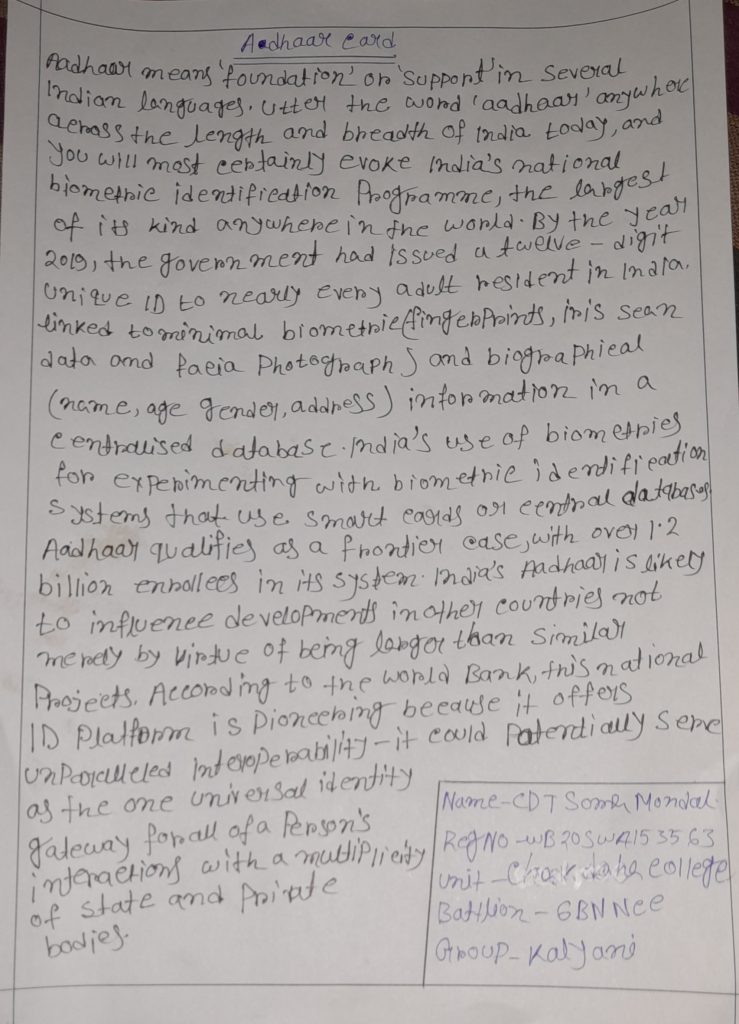 Aadhaar card
Aadhaar means 'foundation' or 'Support' in several
Indian languages. Utter the word 'aadhaar' anywhere
across the length and breadth of India today, and
you will most certainly evoke India's national
biometric identification Programme, the largest
of its kind anywhere in the world. By the year
2019, the government had issued a twelve - digit
unique ID to nearly every adult resident in India.
linked to minimal biometric (fingerprints, iris scan
data and facia Photograph) and biographical
(name, age gender, address) information in a
centralised database. India's use of biometries
for experimenting with biometric identification
systems that use smart cards or central databases
Aadhaar qualifies as a frontier case, with over 1.2
billion enrollees in its system. India's Aadhaar is likely
to influence developments in other countries not
merely by virtue of being larger than similar
Projects. According to the world Bank, this national
ID Platform is pioneering because it offers
unParalleled Interoperability - it could Potentially serve
as the one universal identity
gateway for all of a Person's
interactions with a multiplicity
of state and Private
bodies.
Name - CDT Soma Mondal
Reg NO - WB20SWA153563
unit - Chakdaha College
Battlion - 6BN NCC
Group - Kalyani